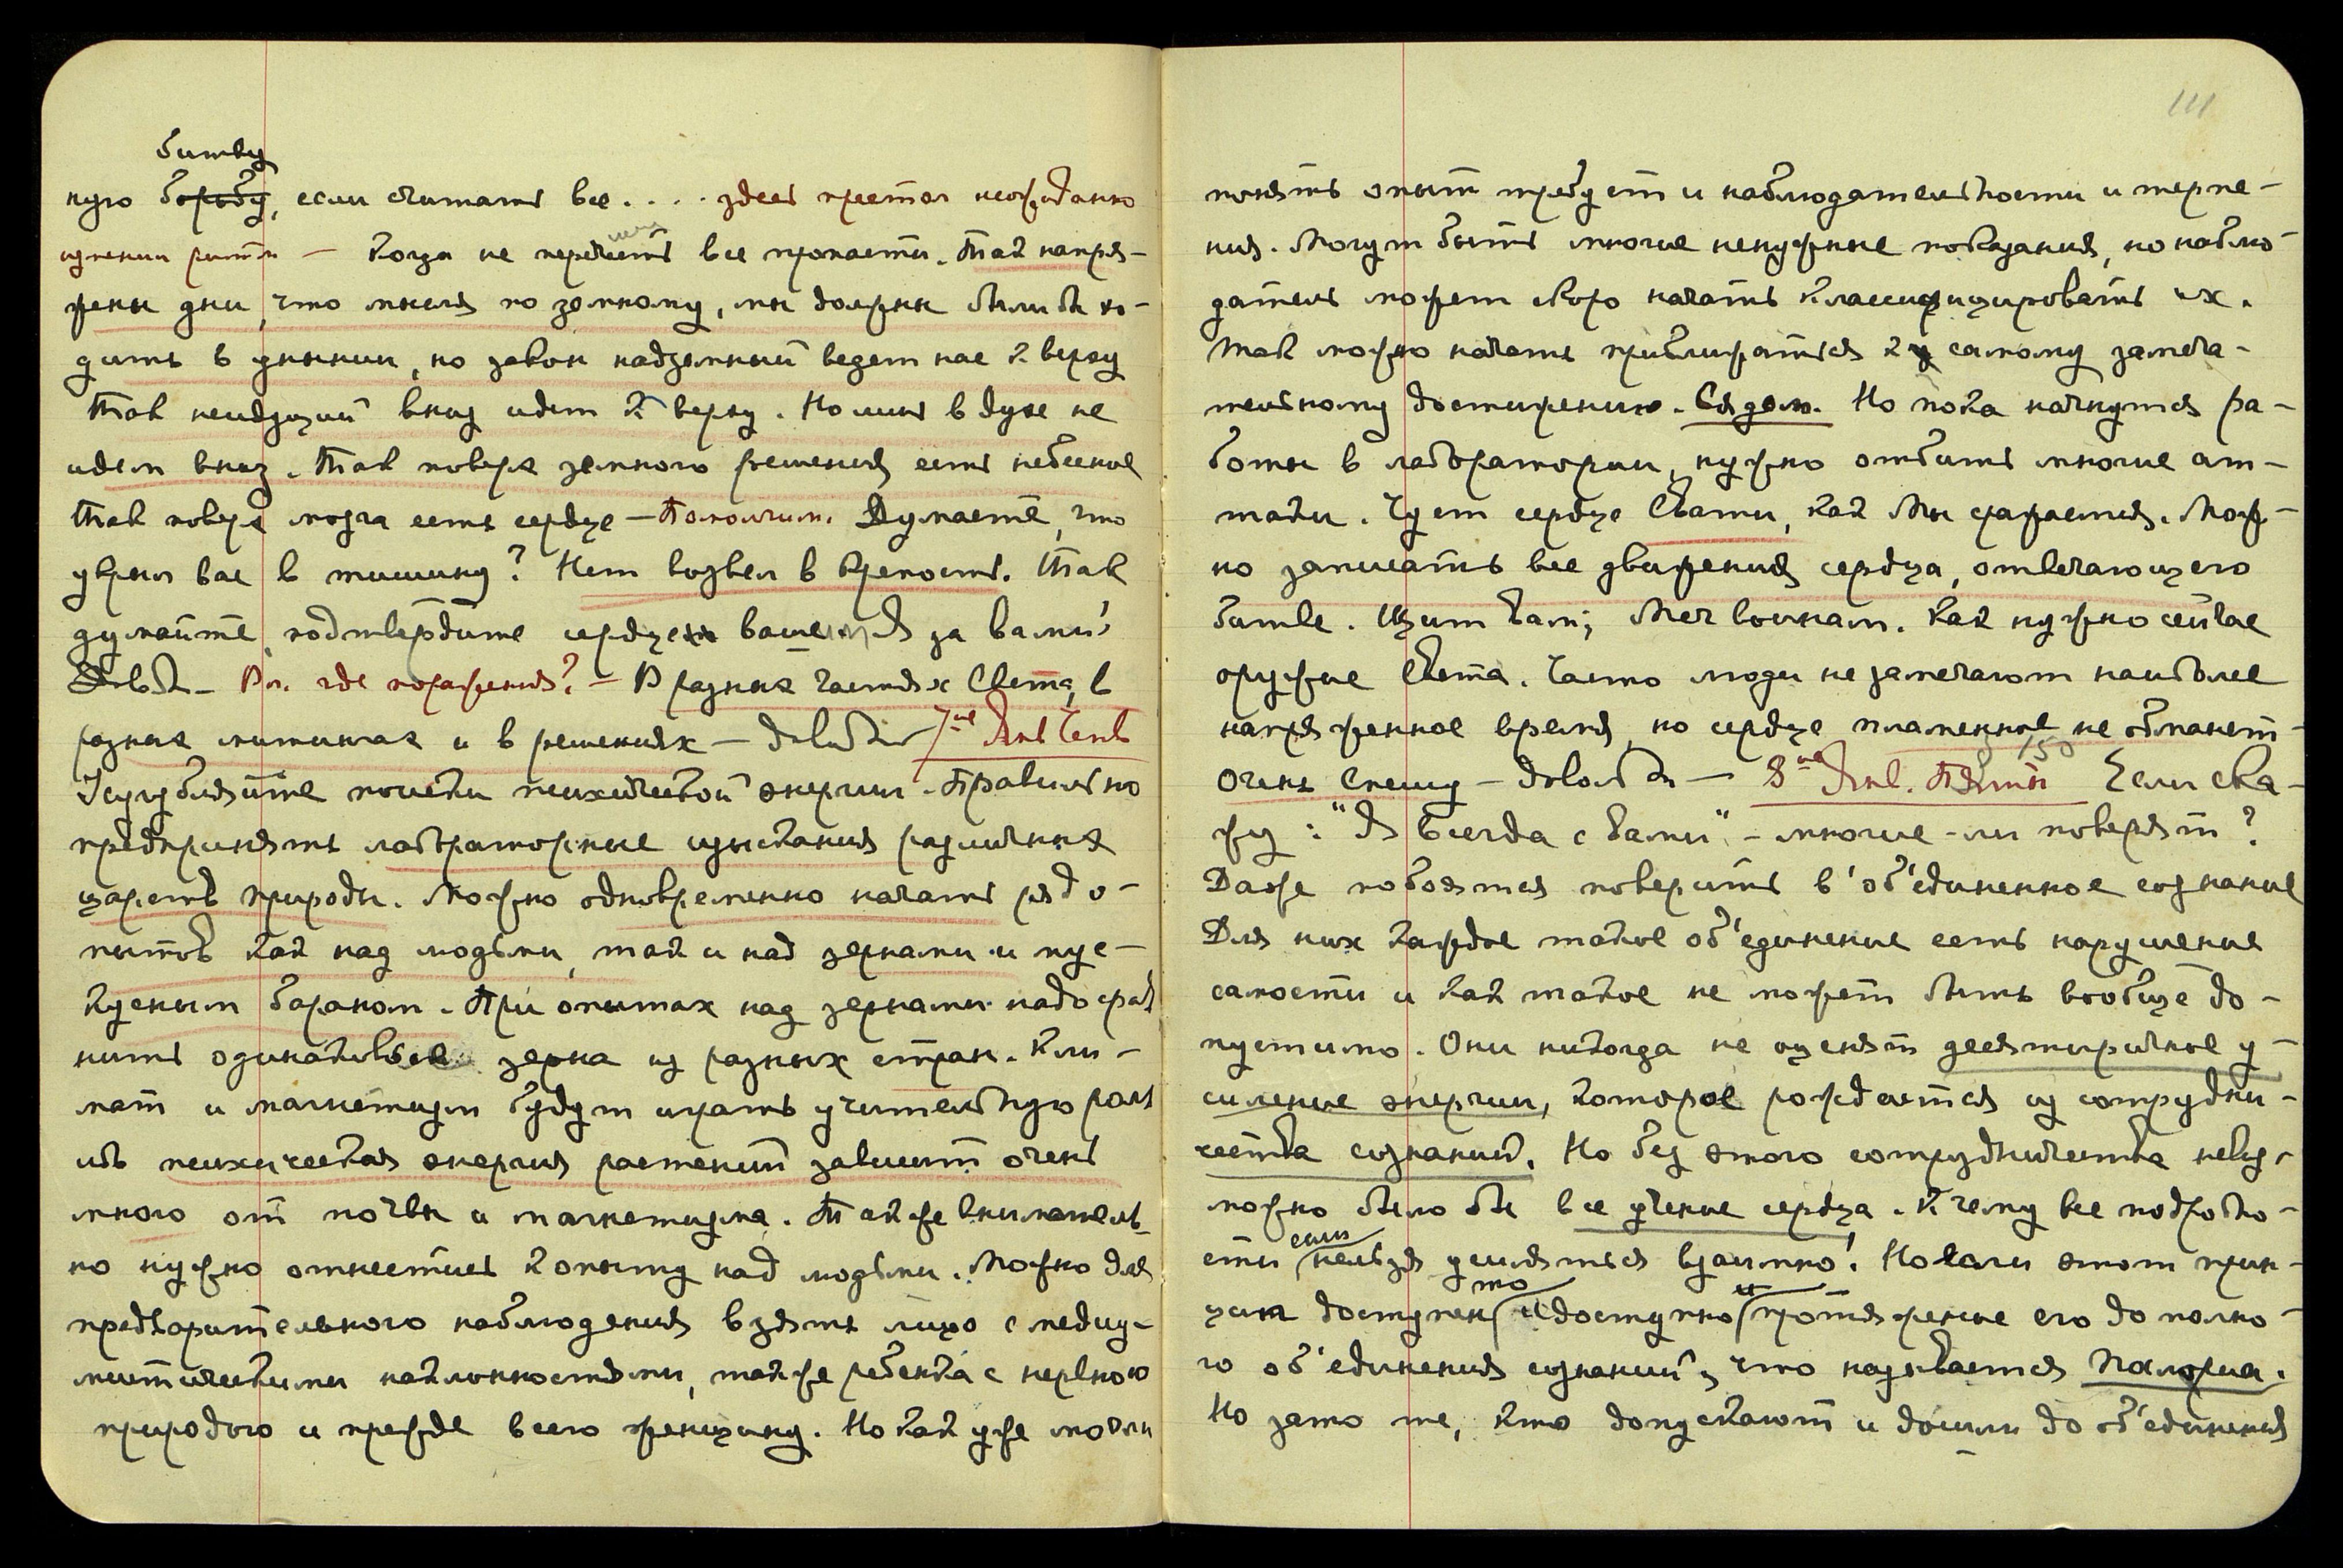 битву
ную борьбу, если считать все.... здесь престол неожиданно
изменил ритм — когда не перечесть все пропасти. Так напря-
жены дни, что мысля по земному, мы должны были бы хо-
дить в унынии, но закон надземный ведет нас к верху
Так неидущий вниз идет к верху. Но мы в духе не
идем вниз. Так поверх земного решения есть небесное
Так поверх мозга есть сердце — Помолчим. Думаете, что
укрыл вас в тишину? Нет возвел в крепость. Так
думайте, подтвердите сердцем вашим Я за вами!
Довольно — Вл. где поражения? — В разных частях Света, в
разных митингах и в решениях — довольно 7ое Янв Четв
Усугубляйте поиски психической энергии. Правильно
предпринять лабораторные изыскания различных
царств природы. Можно одновременно начать ряд о-
пытов как над людьми, так и над зернами и мус-
кусным бараном. При опытах над зернами надо срав
нить одинаковые зерна из разных стран. Кли-
мат и магнетизм будут играть учительную роль
ибо психическая энергия растений зависит очень
много от почвы и магнетизма. Также вниматель-
но нужно отнестись к опыту над людьми. Можно для
предварительного наблюдения взять лицо с медиу-
мистическими наклонностями, также ребенка с нервною
природою и прежде всего женщину. Но как уже могли
111
понять опыт требует и наблюдательности и терпе-
ния. Могут быть многие ненужные показания, но наблю-
датель может скоро начать классифицировать их.
Так можно начать приближаться к самому замеча-
тельному достижению. Сядем. Но пока начнутся ра-
боты в лаборатории, нужно отбить многие ат-
таки. Чует сердце Свати, как Мы сражаемся. Мож-
но записать все движения сердца, отвечающего
битве. Щит Вам; Меч воинам. Как нужно сейчас
оружие Света. Часто люди не замечают наиболее
напряженное время, но сердце пламенное не обманет —
150
Очень Спешу — довольно — 8ое Янв. Пятн Если ска-
жу: "Я Всегда с Вами" — многие-ли поверят?
Даже побоятся поверить в об'единенное сознание
Для них каждое такое об'единение есть нарушение
самости и как такое не может быть вообще до-
пустимо. Они никогда не оценят десятиричное у-
силение энергии, которое рождается из сотрудни-
чества сознаний. Но без этого сотрудничества невоз-
можно было бы все учение сердца. К чему все подробно-
если
сти нельзя усиляться взаимно! Но если этот прин-
то и
цип доступен и доступно протяжение его до полно-
го об'единения сознаний, что называется Палориа.
Но зато те, кто допускают и дошли до об'единения